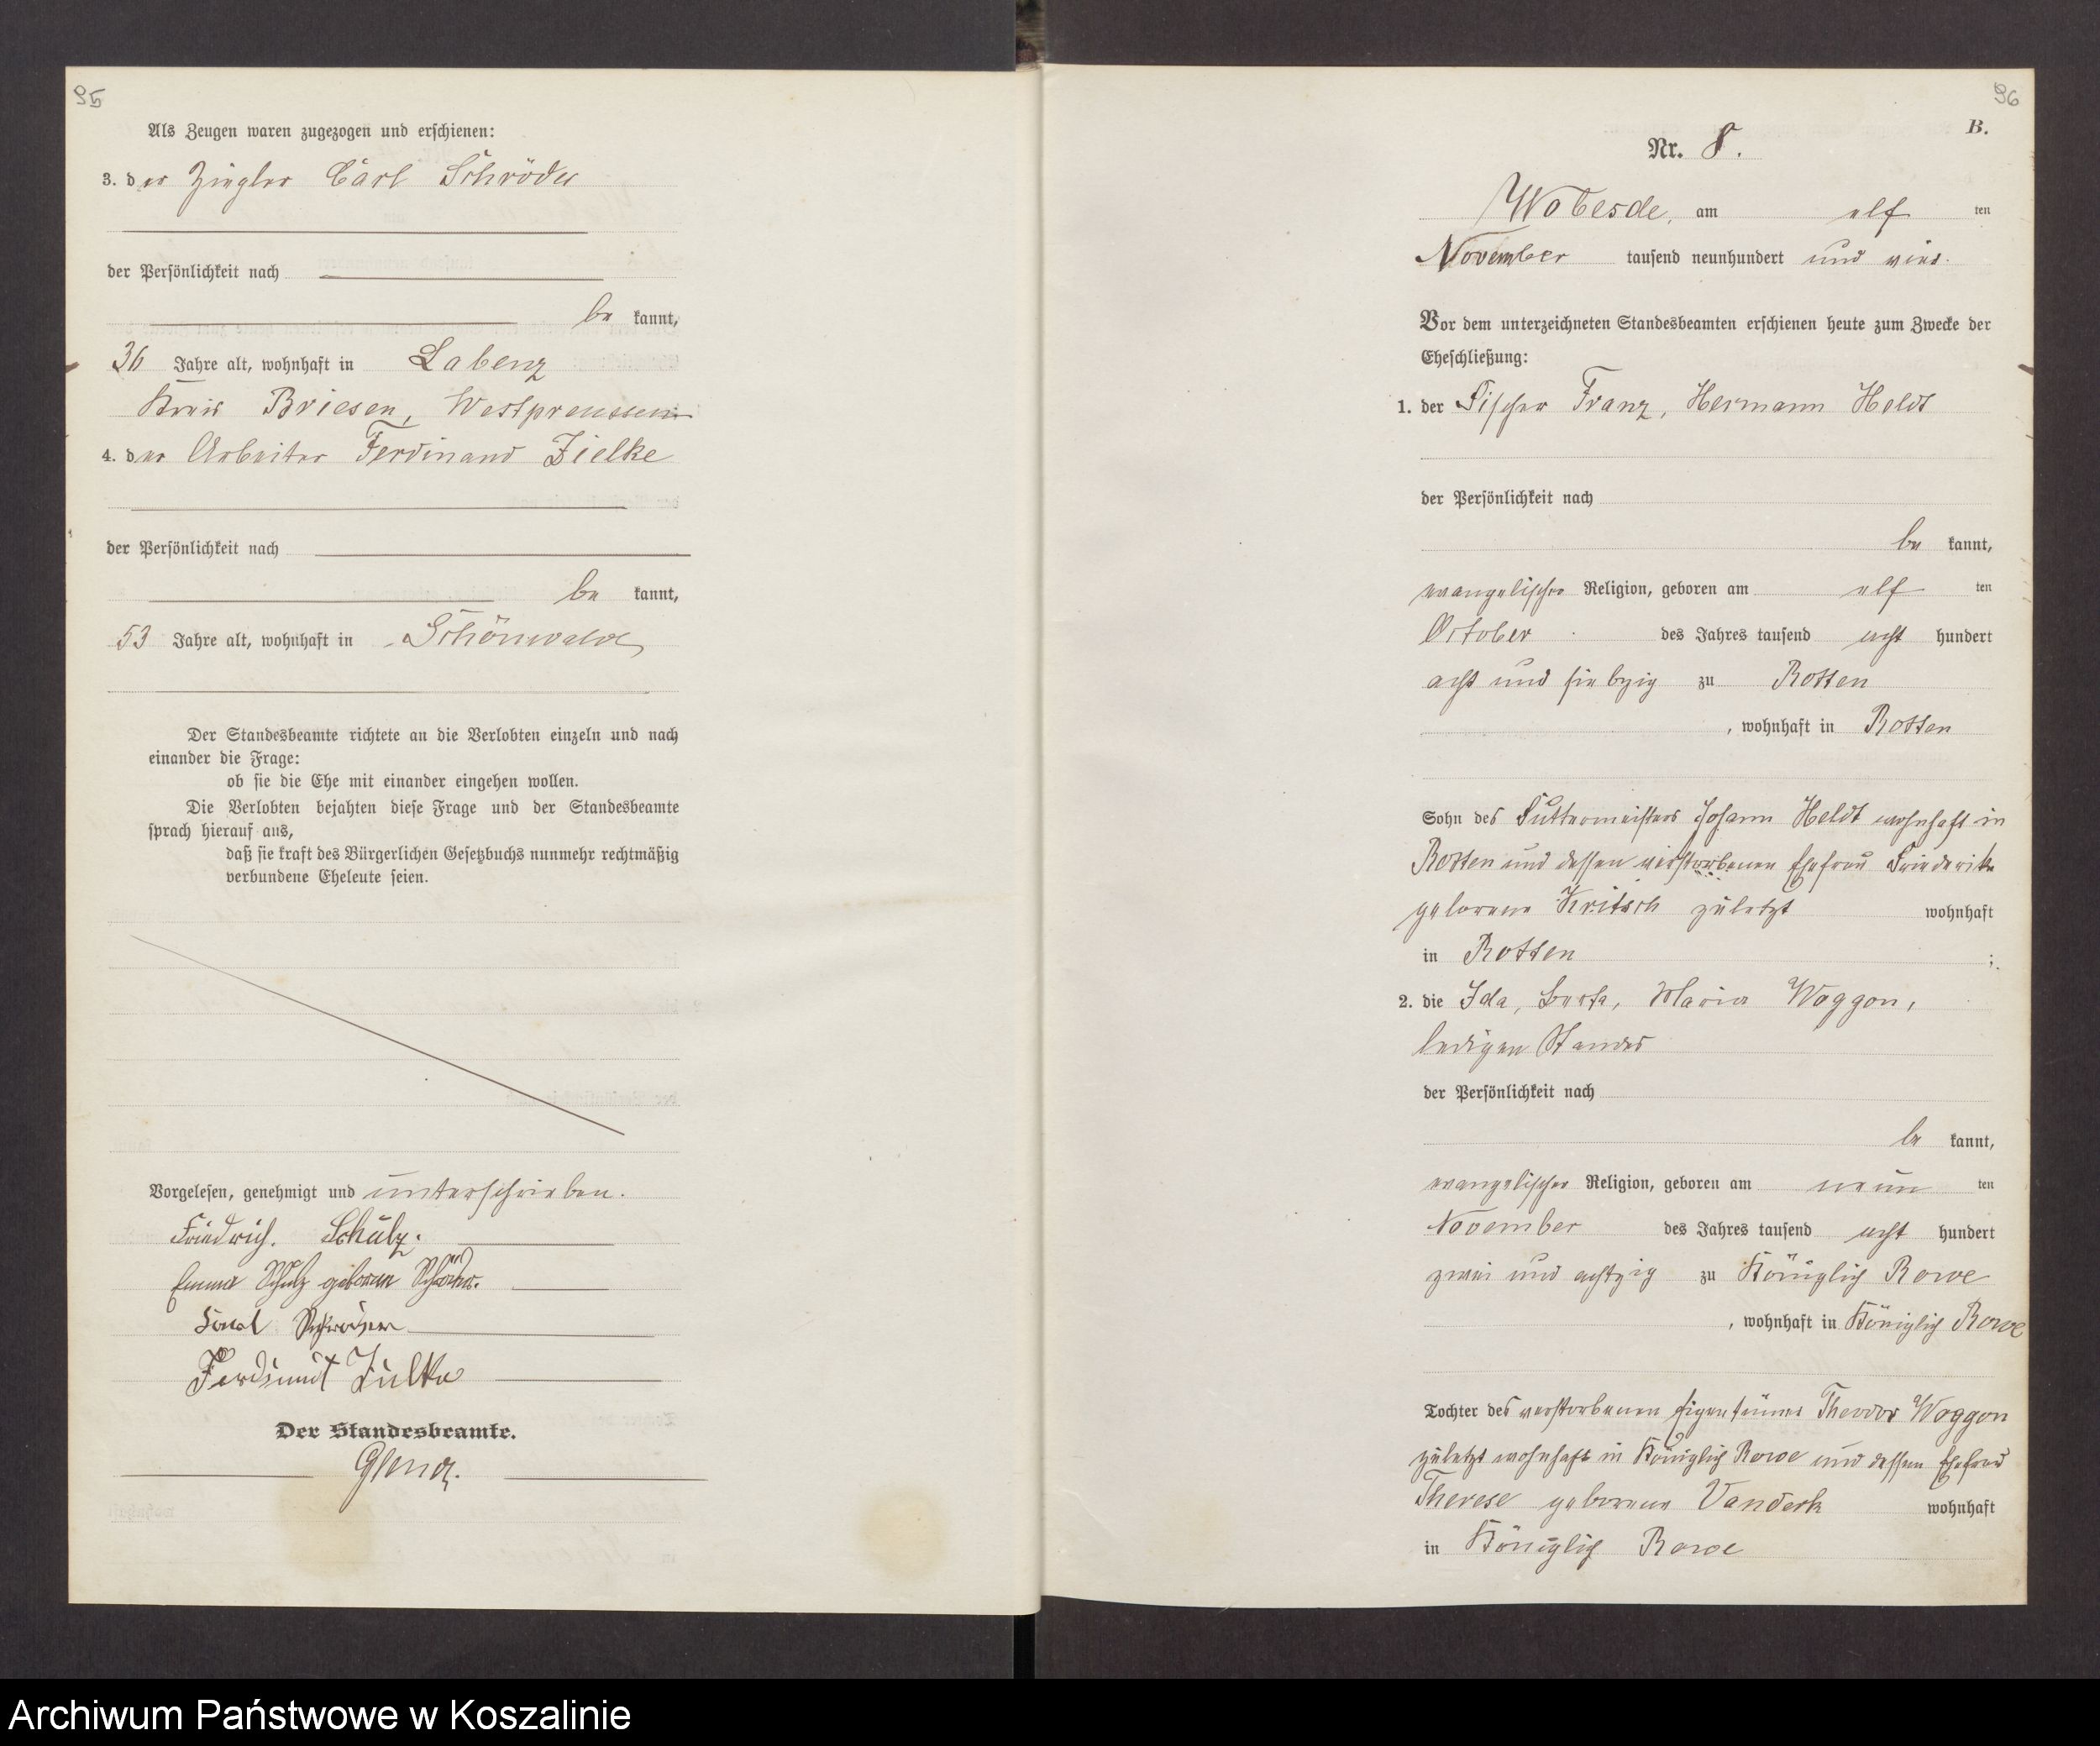 95
Als Zeugen waren zugezogen und erschienen:
3. der Ziegler Carl Schröder
der Persönlichkeit nach
be kannt,
36 Jahre alt, wohnhaft in Labenz
Kreis Briesen, Westpreussen
4. der Arbeiter Ferdinand Zielke
der Persönlichkeit nach
be kannt,
53 Jahre alt, wohnhaft in Schönwalde
Der Standesbeamte richtete an die Verlobten einzeln und nach
einander die Frage:
ob sie die Ehe mit einander eingehen wollen.
Die Verlobten bejahten diese Frage und der Standesbeamte
sprach hierauf aus,
daß sie kraft des Bürgerlichen Gesetzbuchs nunmehr rechtmäßig
verbundene Eheleute seien.
Vorgelesen, genehmigt und unterschrieben.
Friedrich. Schulz.
Emma Schulz geboren
Schröder
Zielke
Der Standesbeamte.
96
B.
Nr. 8.
Wobesde, am elf ten
November tausend neunhundert und vier.
Vor dem unterzeichneten Standesbeamten erschienen heute zum Zwecke der
Eheschließung:
1. der Fischer Franz, Hermann Heldt
der Persönlichkeit nach
be kannt,
evangelischer Religion, geboren am elf ten
October des Jahres tausend acht hundert
acht und siebzig zu Rotten
, wohnhaft in Rotten
Sohn des Futtermeisters Johann Heldt wohnhaft in
Rotten und dessen verstorbenen Ehefrau Friederike
geborene Kritsch zuletzt wohnhaft
in Rotten ;
2. die Ida, Berta, Maria Woggon,
ledigen Standes
der Persönlichkeit nach
be kannt,
evangelischer Religion, geboren am neun ten
November des Jahres tausend acht hundert
zwei und achtzig zu Königlich Rowe
, wohnhaft in Königlich Rowe
Tochter des verstorbenen Eigentümers Theodor Woggon
zuletzt wohnhaft in Königlich Rowe und dessen Ehefrau
Therese geborene Vanderk wohnhaft
in Königlich Rowe
Archiwum Państwowe w Koszalinie